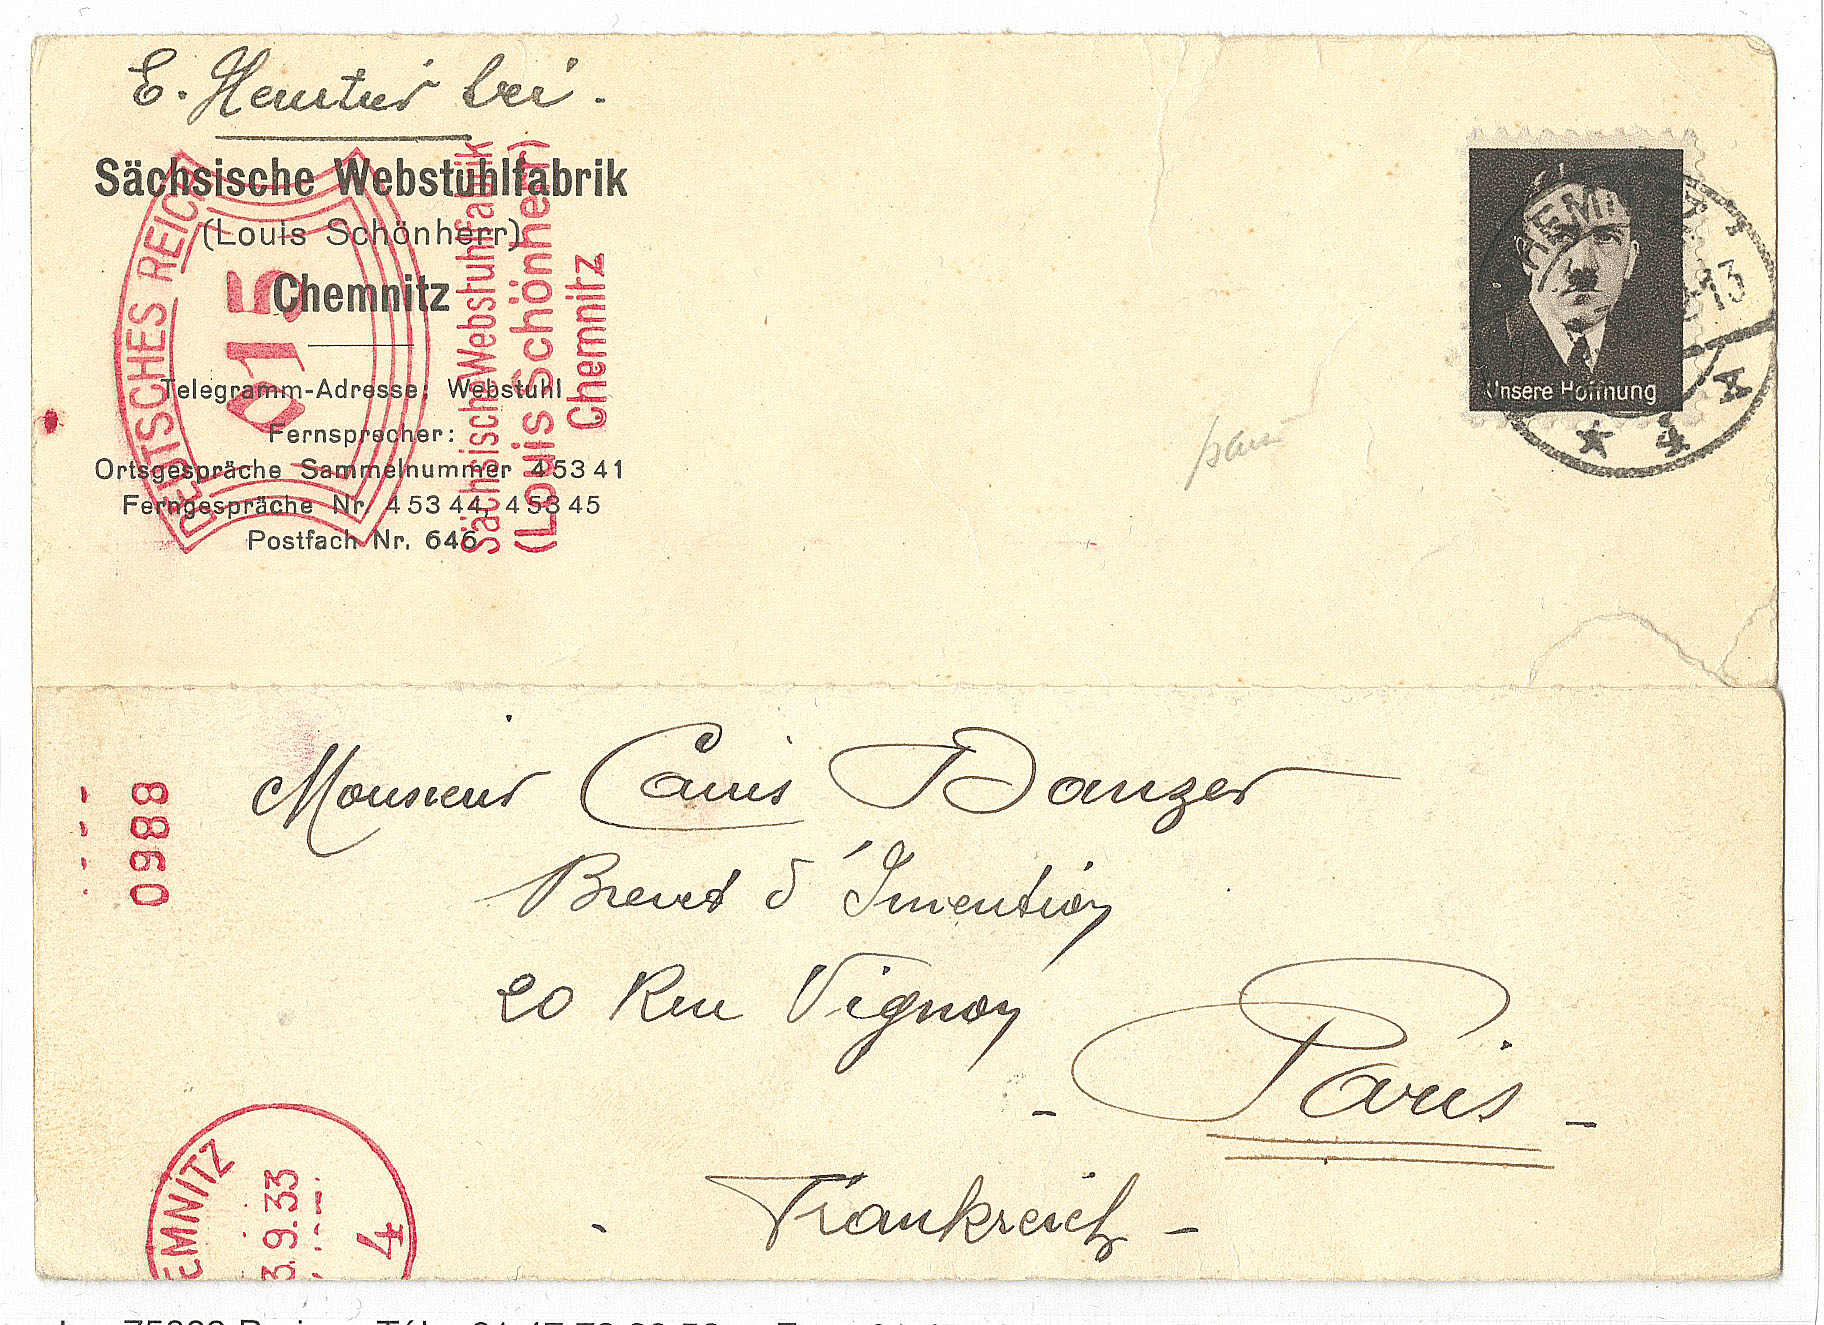 E. Hentur bei.
Sächsische Webstuhlfabrik
(Louis Schönherr)
Chemnitz
Telegramm-Adresse: Webstuhl
Fernsprecher:
Ortsgespräche Sammelnummer 45341
Ferngespräche Nr. 45344, 45345
Postfach Nr. 646
DEUTSCHES REICH
015
Sächsische Webstuhlfabrik
(Louis Schönherr)
Chemnitz
CHEMNITZ
Unsere Hoffnung
0988
Monsieur Danzer
Brevet d'Invention
20 Rue Vignon
- Paris -
- Frankreich -
EMNITZ
3.9.33
4